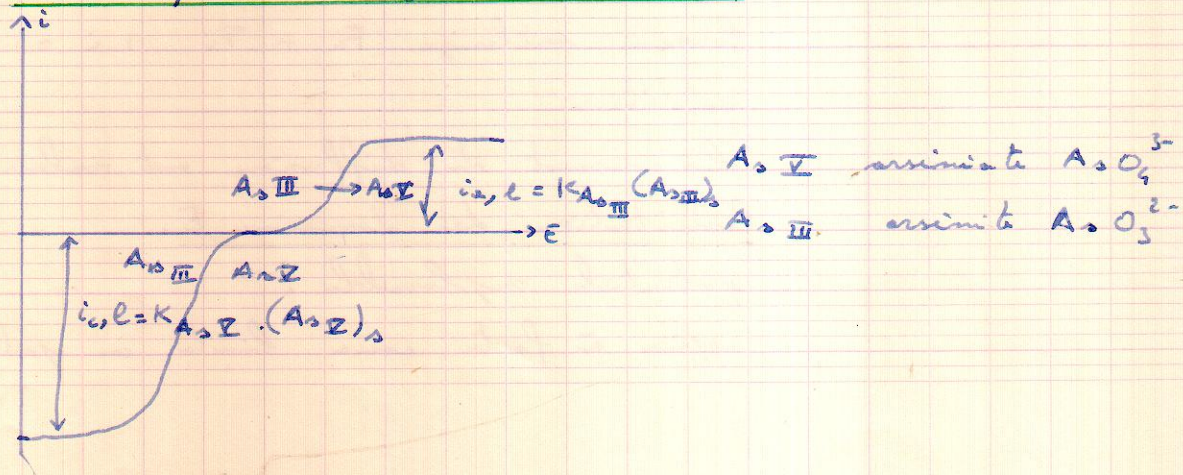 i
As III → As V
i a, l = K As III (As III)s
As V arséniate AsO4 3-
As III arsénite AsO3 2-
→ E
As III As V
i c, l = K As V . (As V)s